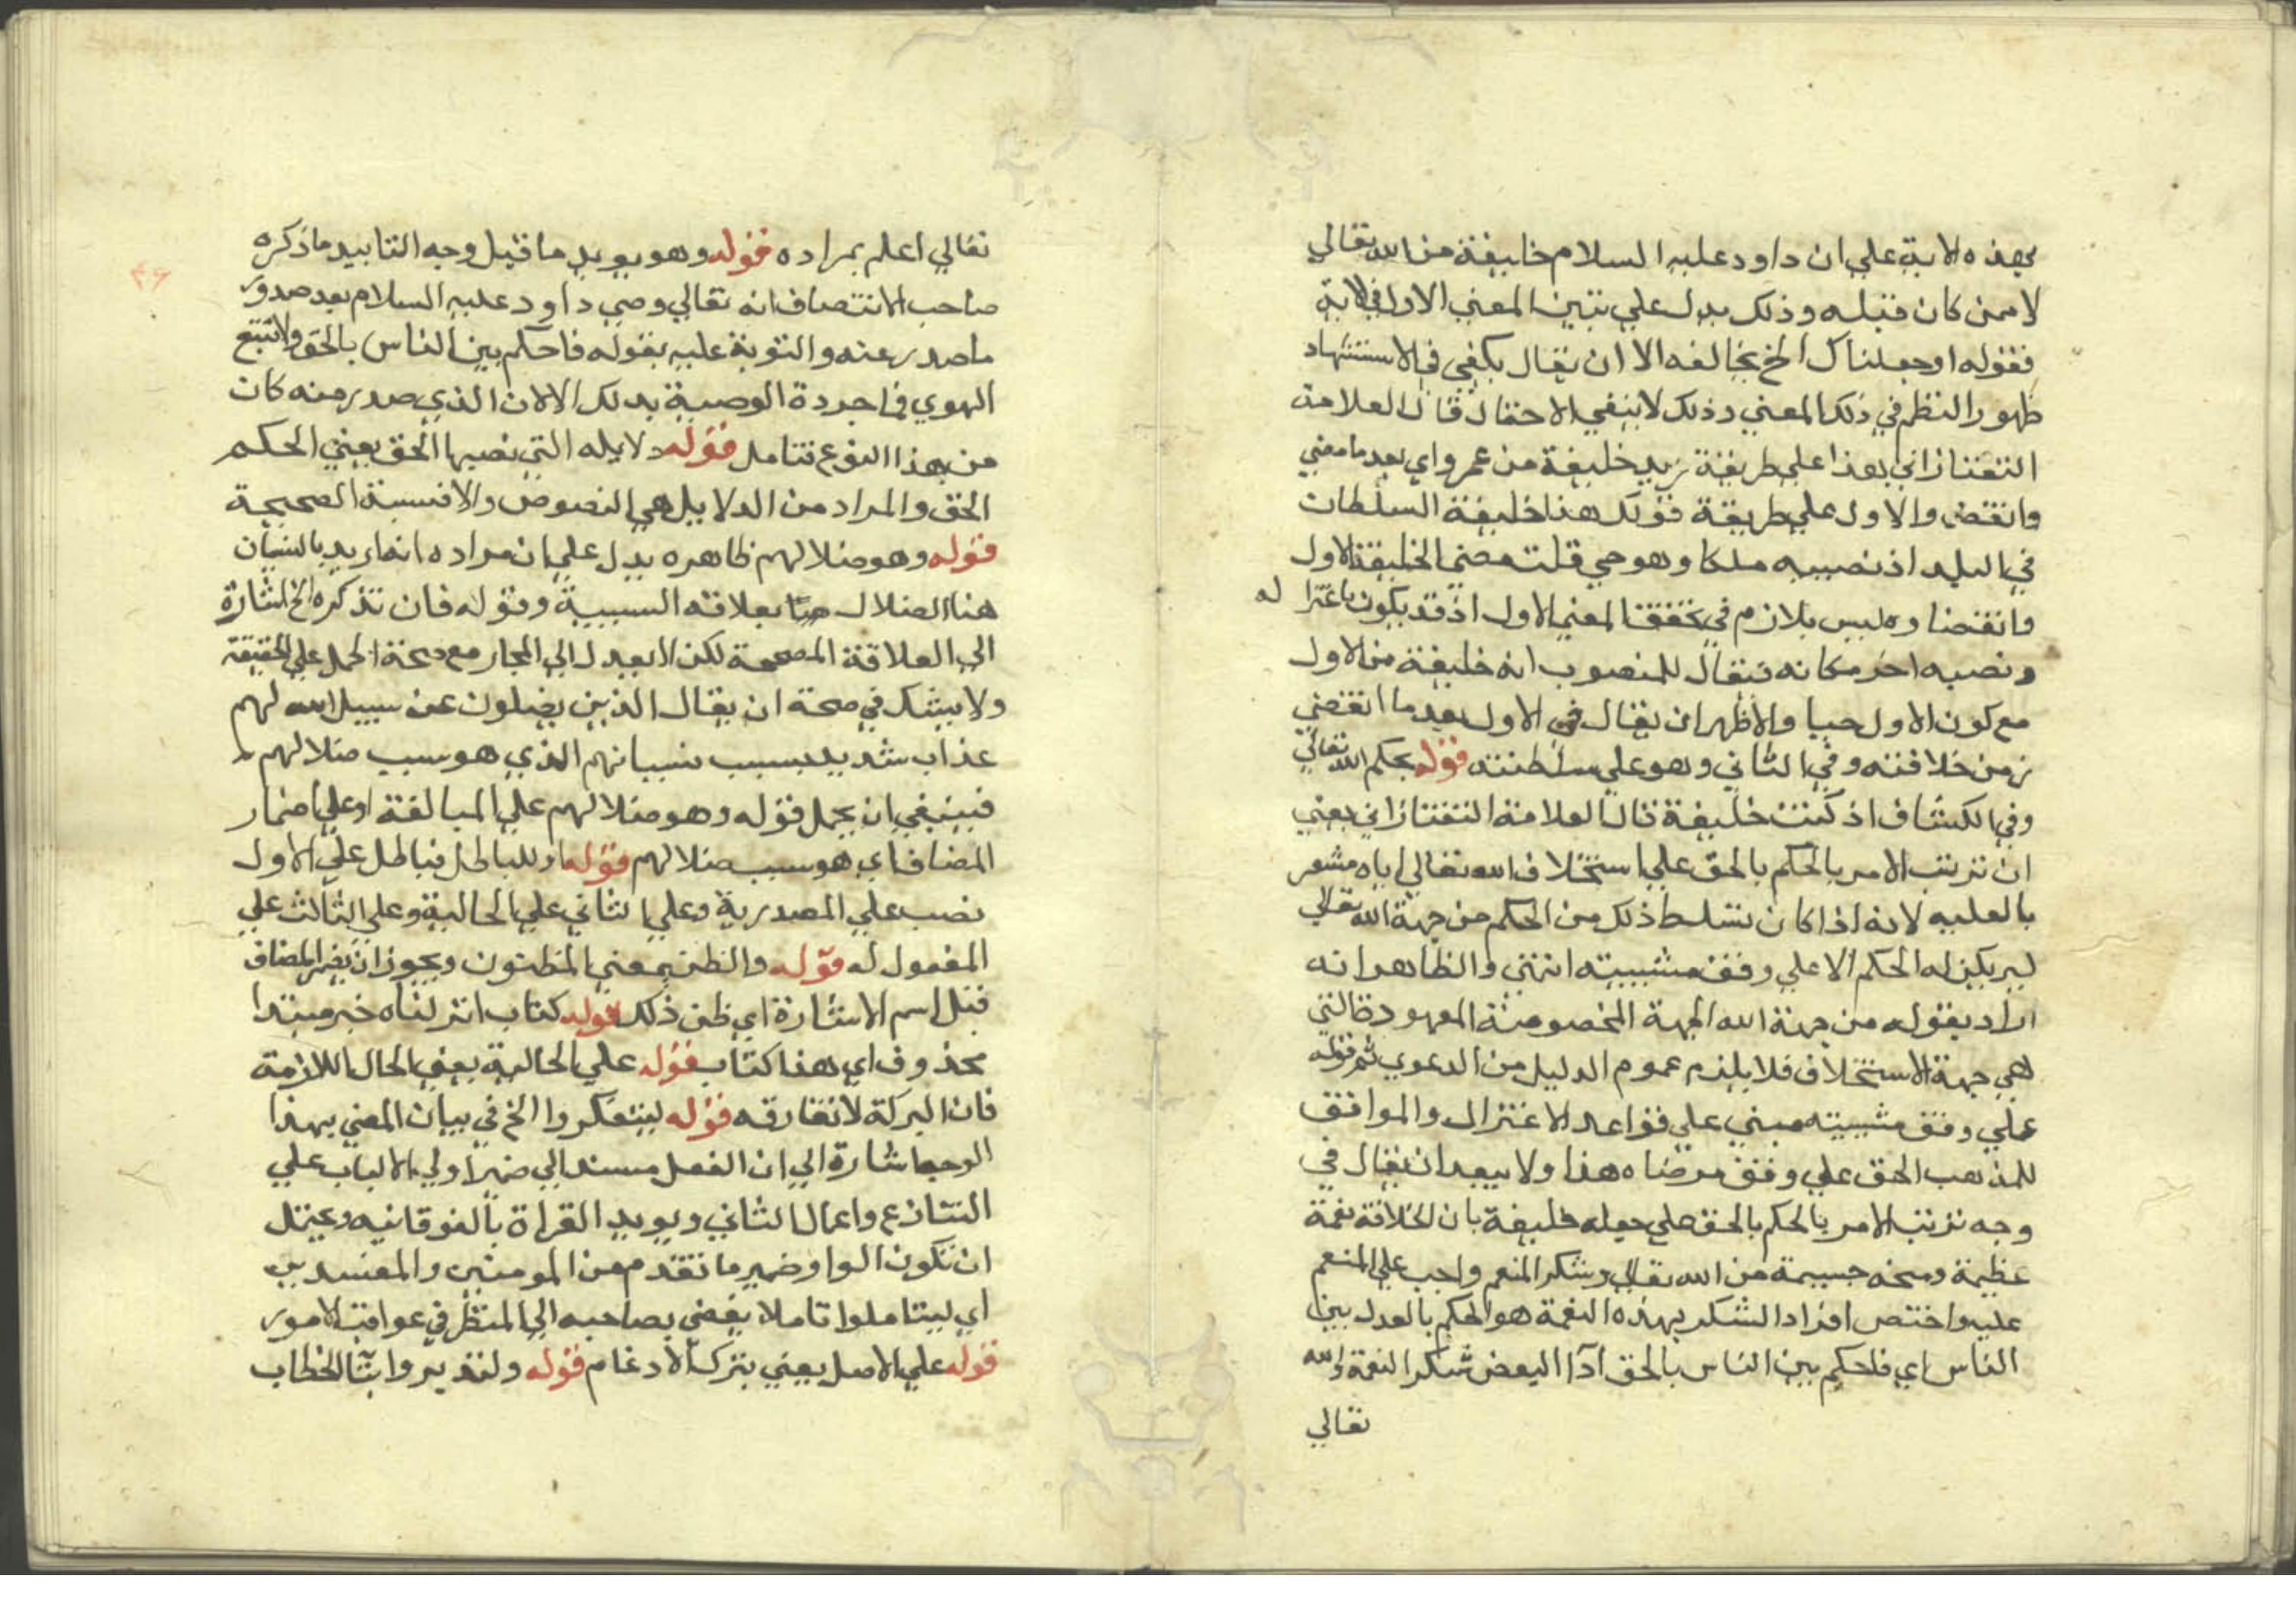 بهذه الاية علي ان داود عليه السلام خليفة من الله تعالي
لا ممن كان قبله وذلك يدل علي تبين المعني الاول في الاية
فقوله او جعلناك الخ يخالفه الا ان يقال يكفي في الاستشهاد
ظهور النظم في ذلك المعني وذلك لا ينفي الاحتمال قال العلامة
التفتازاني هذا علي طريقة زيد خليفة من عمرو اي بعد ما مضي
وانقضي والاول علي طريقة قولك هذا خليفة السلطان
في البلد اذ نصبه ملكا وهو حي قلت مضي الخليفة الاول
وانقضاوه ليس بلازم في تحقق المعني الاول اذ قد يكون باعتزاله
ونصبه اخر مكانه فيقال للمنصوب انه خليفة من الاول
مع كون الاول حيا والاظهر ان يقال في الاول بعد ما انقضي
زمن خلافته وفي الثاني وهو علي سلطنته قوله بحكم الله تعالي
وفي الكشاف اذ كنت خليفة قال العلامة التفتازاني يعني
ان ترتب الامر بالحكم بالحق علي استخلاف الله تعالي اياه مشعر
بالعليه لانه اذا كان تسلط ذلك من الحكم من جهة الله تعالي
لم يكن له الحكم الا علي وفق مشيته انتهي والظاهر انه
اراد بقوله من جهة الله الجهة المخصوصة المعهودة التي
هي جهة الاستخلاف فلا يلزم عموم الدليل من الدعوي ثم قوله
علي وفق مشيته مبني علي قواعد الاعتزال والموافق
للمذهب الحق علي وفق مرضاه هذا ولا يبعد ان يقال في
وجه ترتب الامر بالحكم بالحق علي جعله خليفة بان الخلافة نعمة
عظيمة ومنحه جسيمة من الله تعالي وشكر المنعم واجب علي المنعم
عليه واختص افراد الشكر بهذه النعمة هو الحكم بالعدل بين
الناس اي فاحكم بين الناس بالحق ادا البعض شكر النعمة والله
تعالي
تعالي اعلم بمراده قوله وهو يويد ما قيل وجه التاييد ما ذكره
صاحب الانتصاف انه تعالي وصي داود عليه السلام بعد صدور
ما صدر عنه والتوبة عليه بقوله فاحكم بين الناس بالحق ولا تتبع
الهوي فما جردة الوصية بذلك الا لان الذي صدر منه كان
من هذا النوع فتامل قوله دلايله التي نصبها الحق يعني الحكم
الحق والمراد من الدلايل هي النصوص والاقيسة الصحيحة
قوله وهو ضلالهم ظاهره يدل علي ان مراده انه اريد بالنسيان
هنا الضلال بعلاقة السببية وقوله فان تذكره الخ اشارة
الي العلاقة المصححة لكن لا يعدل الي المجاز مع صحة الحمل علي الحقيقة
ولا يشك في صحة ان يقال الذين يضلون عن سبيل الله لهم
عذاب شديد بسبب نسيانهم الذي هو سبب ضلالهم
فينبغي ان يحمل قوله وهو ضلالهم علي المبالغة او علي اضمار
المضاف اي هو سبب ضلالهم قوله او للباطل فباطل علي الاول
نصب علي المصدرية وعلي الثاني علي الحالية وعلي الثالث علي
المفعول له قوله والظن بمعني المظنون ويجوز ان يضمر المضاف
قبل اسم الاشارة اي ظن ذلك قوله كتاب انزلناه خبر مبتدا
محذوف اي هذا كتاب قوله علي الحالية يعني الحال اللازمة
فان البركة لا تفارقه قوله ليتفكروا الخ في بيان المعني بهذا
الوجه اشارة الي ان الفعل مسند الي ضمير اولي الالباب علي
التنازع واعمال الثاني ويويد القراة بالفوقانيه ويحتمل
ان تكون الواو ضمير ما تقدم من المومنين والمفسدين
اي ليتاملوا تاملا يفضي بصاحبه الي النظر في عواقب الامور
قوله علي الاصل يعني بترك الادغام قوله ولتدبروا بتا الخطاب